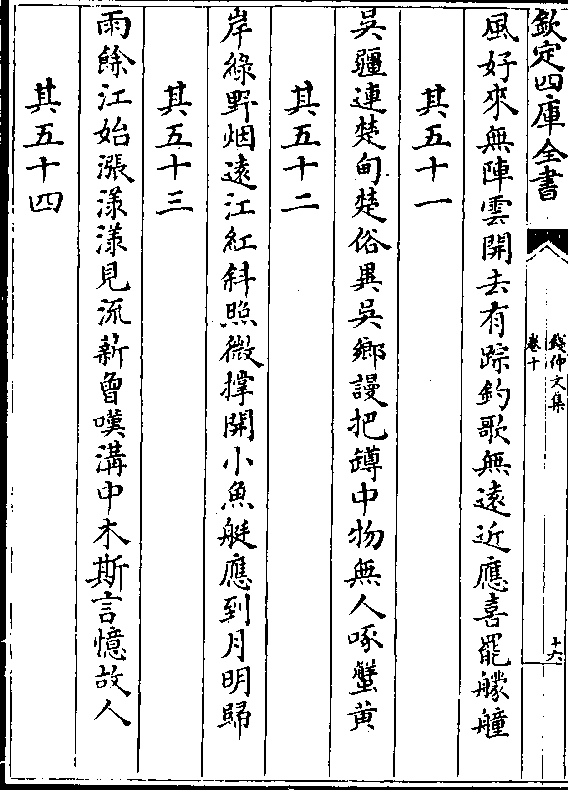 欽定四庫全書
錢仲文集
卷十
十六
風好來無陣雲開去有踪釣歌無遠近應喜罷艨艟
其五十一
吳疆連楚甸楚俗異吳鄉謾把罇中物無人啄蟹黄
其五十二
岸綠野烟遠江紅斜照微撑開小魚艇應到月明歸
其五十三
雨餘江始漲漾漾見流薪曾嘆溝中木斯言憶故人
其五十四